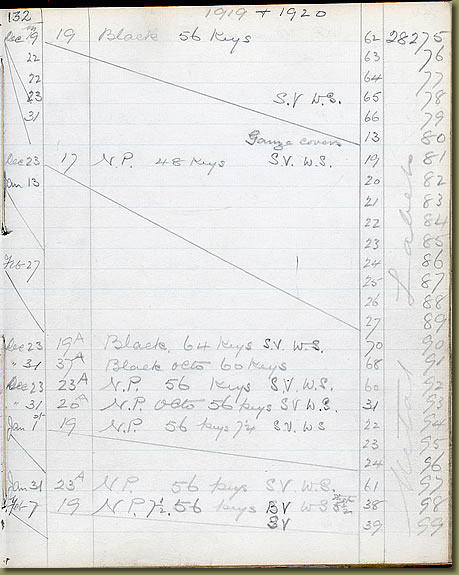 132 1919 + 1920
Dec 19 19 Black 56 Keys 62 28275
63 76
22 64 77
22 S.V W.S. 65 78
23 66 79
31 Gauze covers 13 80
Dec 23 17 N.P. 48 Keys S.V. W.S. 19 81
Jan 13 20 82
21 83
22 84
23 85
24 86
Feb 27 25 87
26 88
27 89
Dec 23 19A Black. 64 Keys S.V. W.S. 70 90
" 31 37A Black octo 60 Keys 68 91
Dec 23 23A N.P. 56 Keys S.V. W.S. 60 92
" 31 20A N.P. octo 56 Keys SV W.S. 31 93
Jan 1st 19 N.P. 56 Keys 7½ S.V. WS 22 94
23 95
24 96
Jan 31 23A N.P. 56 Keys S.V. 61 97
Feb 7 19 N.P. 7½ 56 Keys BV WS 38 98
SV 39 99
Metal Labels